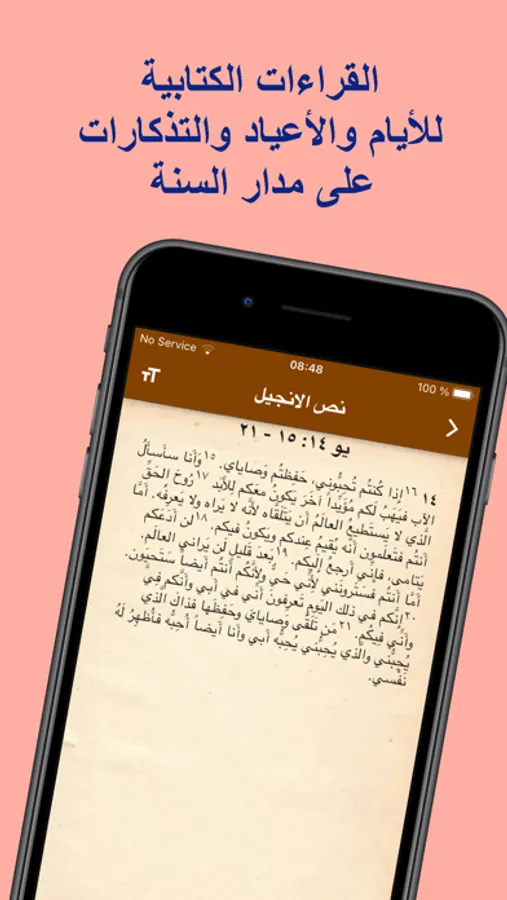 القراءات الكتابية
للأيام والأعياد والتذكارات
على مدار السنة
No Service
08:48
100 %
TT
نص الانجيل
يو ١٤: ١٥ - ٢١
١٤ ١٦ إذا كُنتُم تُحِبُّوني، حَفِظتُم وَصَاياي. ١٥ وَأَنا سأَسأَلُ
الآب فيَهَبُ لَكم مُؤَيِّداً آخَرَ يَكونُ معَكم لِلأَبَد ١٧ رُوحَ الحَقِّ
الَّذي لا يَستَطيعُ العالَمُ أَن يَتَلَقَّاه لأَنَّه لا يَراه ولا يَعرِفُه. أَمَّا
أَنتُم فتَعلَمون أَنَّه يُقيمُ عِندَكم ويَكونُ فيكم. ١٨ لن أَدَعَكم
يَتامى، فإِنِّي أَرجعُ إِلَيكم. ١٩ بَعدَ قَليلٍ لَن يَرانيَ العالَم.
أَمَّا أَنتُم فسَتَرونَني لِأَنِّي حَيٌّ ولِأَنَّكُم أَنتُم أَيضاً ستَحيَون.
٢٠ إِنَّكم في ذلك اليَومِ تَعرِفونَ أَنِّي في أَبي وأَنَّكم فِيَّ
وأَنِّي فِيكُم. ٢١ مَن تَلَقَّى وَصايايَ وحَفِظَها فذاكَ الَّذي
يُحِبُّني والَّذي يُحِبُّني يُحِبُّه أَبي وأَنا أَيضاً أُحِبُّه فأُظهِرُ لَهُ
نَفْسي.